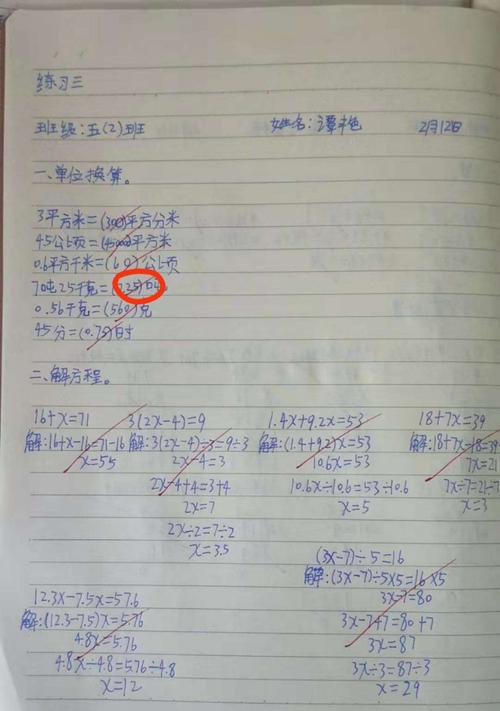 练习三
班级:五(2)班 姓名:谭丰色 2月12日
一、单位换算。
3平方米=(300)平方分米
4.5公顷=(45000)平方米
0.6平方千米=(60)公顷
7吨25千克=(7.25)吨
0.56千克=(560)克
45分=(0.75)时
二、解方程。
16+x=71 3(2x-4)=9 1.4x+9.2x=53 18+7x=39
解:16+x-16=71-16 解:3(2x-4)÷3=9÷3 解:(1.4+9.2)x=53 解:18+7x-18=39
x=55 2x-4=3 10.6x=53 7x=21
2x-4+4=3+4 10.6x÷10.6=53÷10.6 7x÷7=21÷7
2x=7 x=5 x=3
2x÷2=7÷2
x=3.5
(3x-7)÷5=16
解:(3x-7)÷5×5=16×5
12.3x-7.5x=57.6 3x-7=80
解:(12.3-7.5)x=5.76 3x-7+7=80+7
4.8x=5.76 3x=87
4.8x÷4.8=5.76÷4.8 3x÷3=87÷3
x=12 x=29